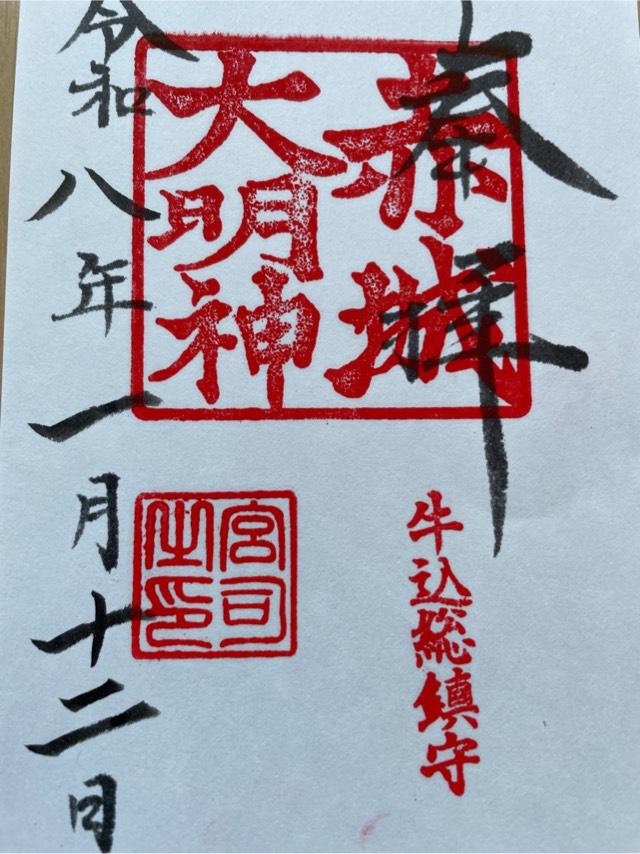 奉拝
赤城
大明神
牛込総鎮守
宮司
之印
令和八年一月十二日